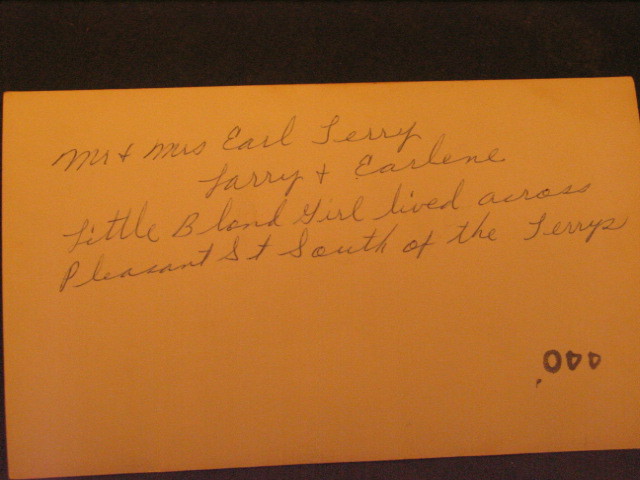 Mr + Mrs Earl Terry
Larry + Earlene
Little Blond Girl lived across
Pleasant St South of the Terrys
.000